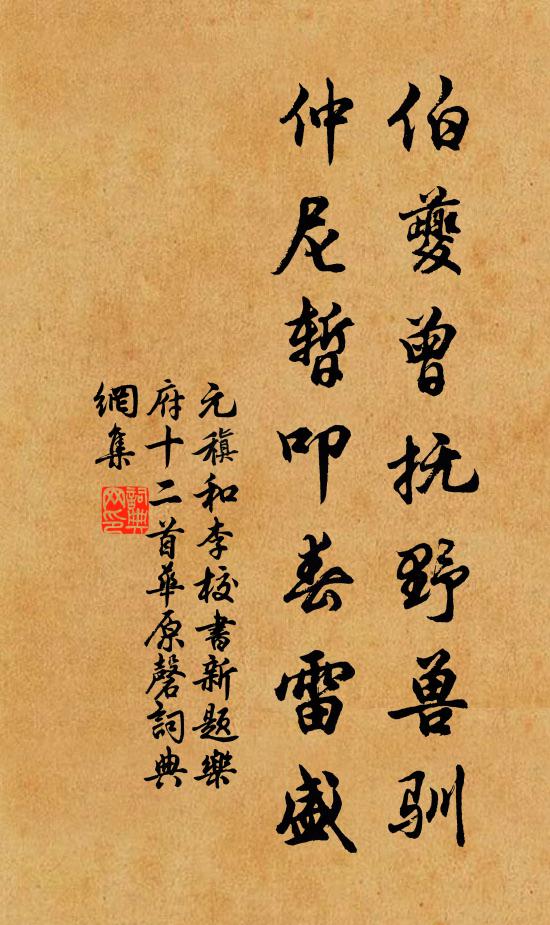 伯夔曾抚野兽驯
仲尼暂叩春雷盛
元稹和李校书新题乐
府十二首华原磬词典
網集
詞典網印